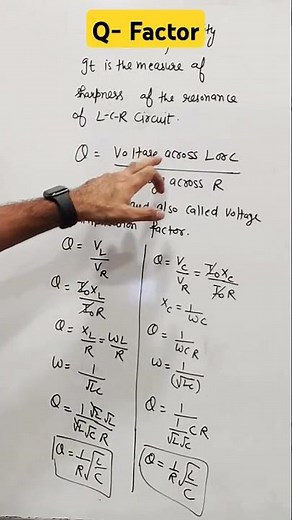 Q- Factor
It is the measure of
sharpness of the resonance
of L-C-R Circuit.
Q = Voltage across L or C
across R
and also called voltage
factor.
Q = V_L / V_R
Q = I₀X_L / I₀R
Q = X_L / R = ωL / R
ω = 1 / √LC
Q = 1 √L √L / √L √C R
Q = 1/R √(L/C)
Q = V_C / V_R = I₀X_C / I₀R
X_C = 1 / ωC
Q = 1 / ωCR
ω = 1 / (√LC)
Q = 1 / (1 / √L √C) CR
Q = 1/R √(L/C)